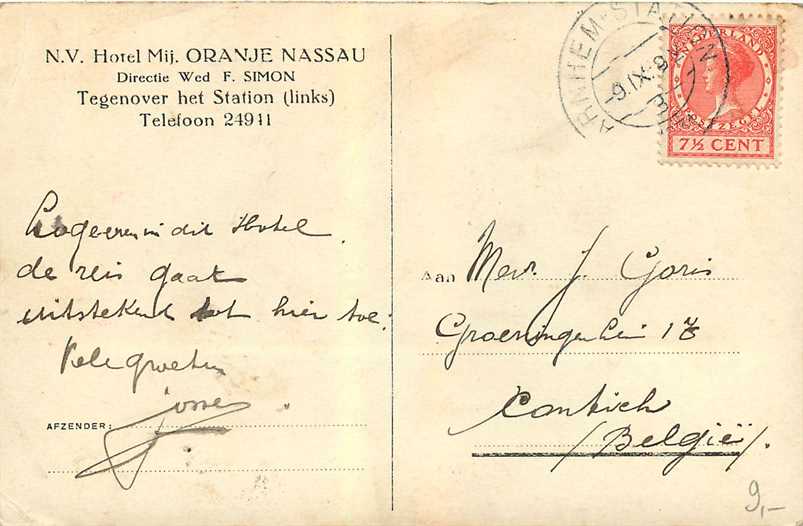 N.V. Hotel Mij. ORANJE NASSAU
Directie Wed F. SIMON
Tegenover het Station (links)
Telefoon 24911
Logeeren in dit Hotel.
de reis gaat
uitstekend tot hier toe.
Vele groeten
AFZENDER:
ARNHEM-STATION
9.IX.
NEDERLAND
POSTZEGEL
7½ CENT
Aan Mevr. J. Goris
Groeningenlein
Contich
(België).
9,-